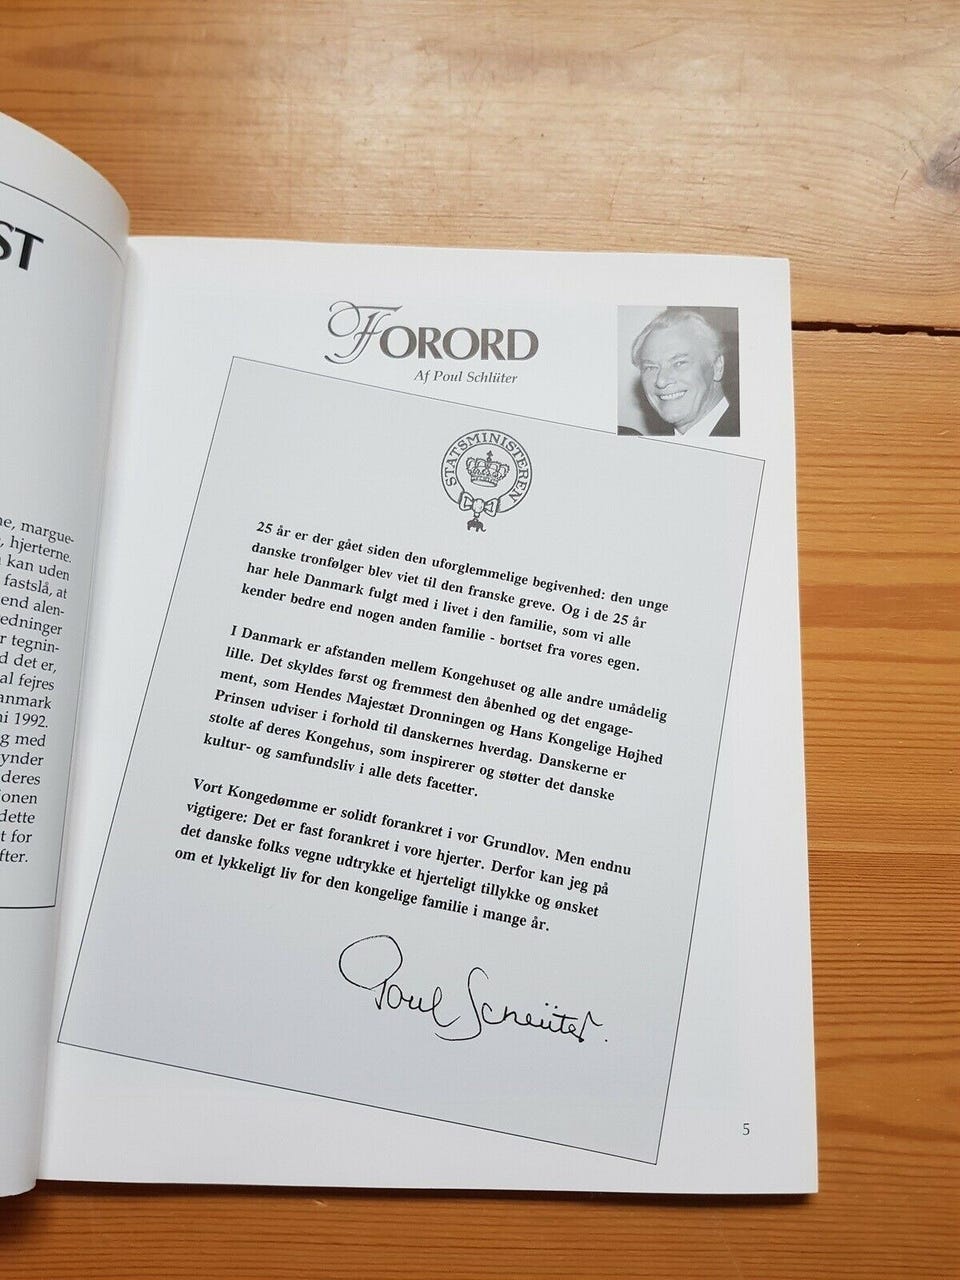 ST
ne, margue-
, hjerterne.
kan uden
fastslå, at
end alen-
edninger
r tegnin-
d det er,
al fejres
anmark
ni 1992.
g med
ynder
deres
ionen
dette
t for
fter.
FORORD
Af Poul Schlüter
STATSMINISTEREN
25 år er der gået siden den uforglemmelige begivenhed: den unge
danske tronfølger blev viet til den franske greve. Og i de 25 år
har hele Danmark fulgt med i livet i den familie, som vi alle
kender bedre end nogen anden familie - bortset fra vores egen.
I Danmark er afstanden mellem Kongehuset og alle andre umådelig
lille. Det skyldes først og fremmest den åbenhed og det engage-
ment, som Hendes Majestæt Dronningen og Hans Kongelige Højhed
Prinsen udviser i forhold til danskernes hverdag. Danskerne er
stolte af deres Kongehus, som inspirerer og støtter det danske
kultur- og samfundsliv i alle dets facetter.
Vort Kongedømme er solidt forankret i vor Grundlov. Men endnu
vigtigere: Det er fast forankret i vore hjerter. Derfor kan jeg på
det danske folks vegne udtrykke et hjerteligt tillykke og ønsket
om et lykkeligt liv for den kongelige familie i mange år.
Poul Schlüter.
5